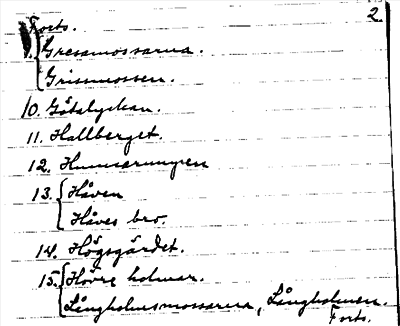 2.
Forts.
9. Gresamossarna.
Grissmossen.
10. Götalyckan.
11. Hallberget.
12. Humserumyren
13. Håven
Håves bro.
14. Högsgärdet.
15. Hövre holmar.
Långholmsmossarna, Långholmen.
Forts.